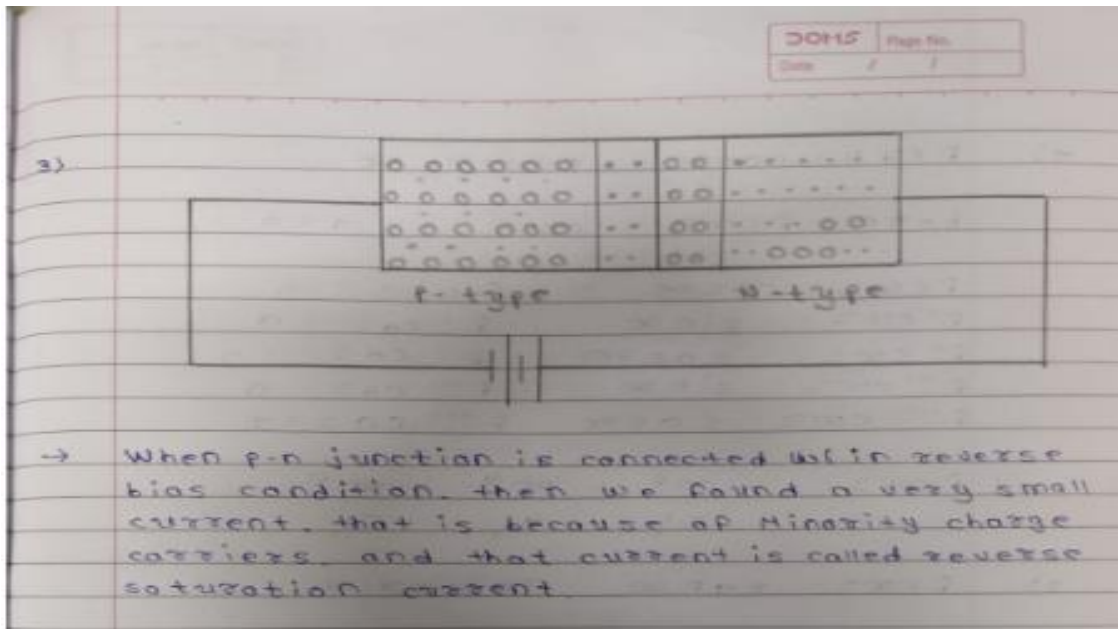 DOMS Page No.
Date / /
3)
P-type N-type
→ When p-n junction is connected in reverse
bias condition. then we found a very small
current. that is because of Minority charge
carriers. and that current is called reverse
saturation current.